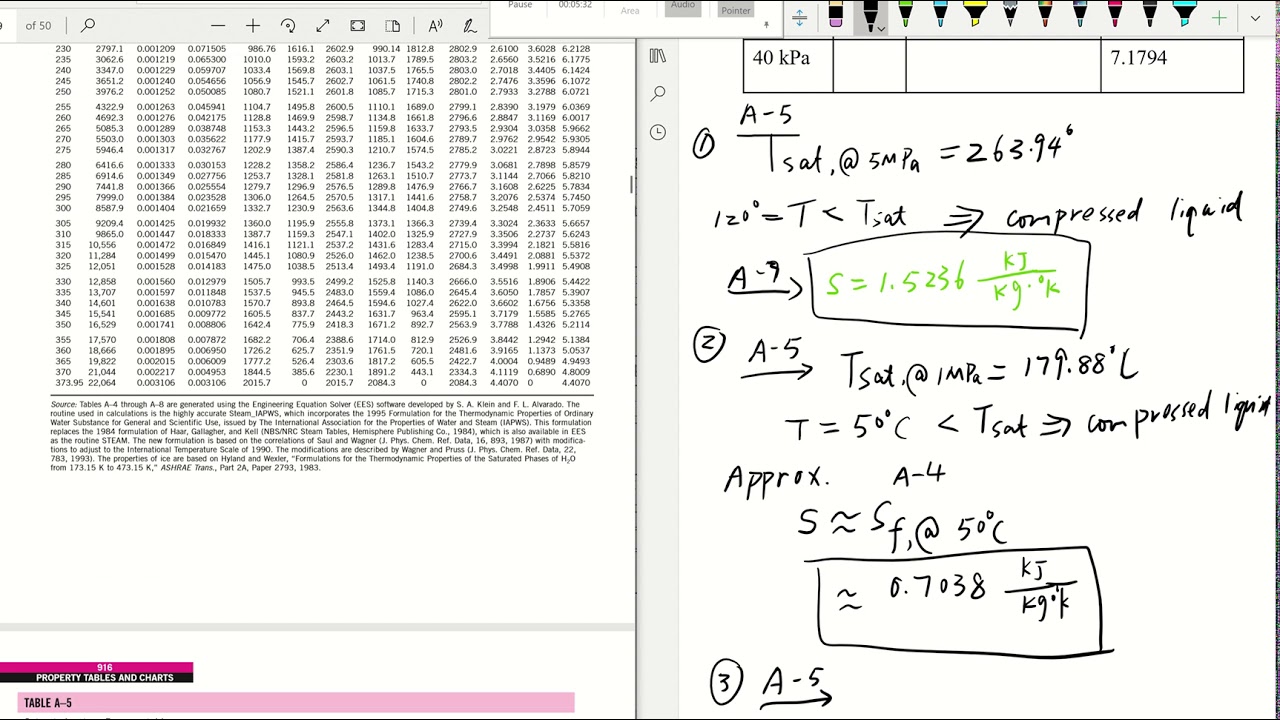 of 50
Pause
00:05:32
Area
Audio
Pointer
230 2797.1 0.001209 0.071505 986.76 1616.1 2602.9 990.14 1812.8 2802.9 2.6100 3.6028 6.2128
235 3062.6 0.001219 0.065300 1010.0 1593.2 2603.2 1013.7 1789.5 2803.2 2.6560 3.5216 6.1775
240 3347.0 0.001229 0.059707 1033.4 1569.8 2603.1 1037.5 1765.5 2803.0 2.7018 3.4405 6.1424
245 3651.2 0.001240 0.054656 1056.9 1545.7 2602.7 1061.5 1740.8 2802.2 2.7476 3.3596 6.1072
250 3976.2 0.001252 0.050085 1080.7 1521.1 2601.8 1085.7 1715.3 2801.0 2.7933 3.2788 6.0721
255 4322.9 0.001263 0.045941 1104.7 1495.8 2600.5 1110.1 1689.0 2799.1 2.8390 3.1979 6.0369
260 4692.3 0.001276 0.042175 1128.8 1469.9 2598.7 1134.8 1661.8 2796.6 2.8847 3.1169 6.0017
265 5085.3 0.001289 0.038748 1153.3 1443.2 2596.5 1159.8 1633.7 2793.5 2.9304 3.0358 5.9662
270 5503.0 0.001303 0.035622 1177.9 1415.7 2593.7 1185.1 1604.6 2789.7 2.9762 2.9542 5.9305
275 5946.4 0.001317 0.032767 1202.9 1387.4 2590.3 1210.7 1574.5 2785.2 3.0221 2.8723 5.8944
280 6416.6 0.001333 0.030153 1228.2 1358.2 2586.4 1236.7 1543.2 2779.9 3.0681 2.7898 5.8579
285 6914.6 0.001349 0.027756 1253.7 1328.1 2581.8 1263.1 1510.7 2773.7 3.1144 2.7066 5.8210
290 7441.8 0.001366 0.025554 1279.7 1296.9 2576.5 1289.8 1476.9 2766.7 3.1608 2.6225 5.7834
295 7999.0 0.001384 0.023528 1306.0 1264.5 2570.5 1317.1 1441.6 2758.7 3.2076 2.5374 5.7450
300 8587.9 0.001404 0.021659 1332.7 1230.9 2563.6 1344.8 1404.8 2749.6 3.2548 2.4511 5.7059
305 9209.4 0.001425 0.019932 1360.0 1195.9 2555.8 1373.1 1366.3 2739.4 3.3024 2.3633 5.6657
310 9865.0 0.001447 0.018333 1387.7 1159.3 2547.1 1402.0 1325.9 2727.9 3.3506 2.2737 5.6243
315 10,556 0.001472 0.016849 1416.1 1121.1 2537.2 1431.6 1283.4 2715.0 3.3994 2.1821 5.5816
320 11,284 0.001499 0.015470 1445.1 1080.9 2526.0 1462.0 1238.5 2700.6 3.4491 2.0881 5.5372
325 12,051 0.001528 0.014183 1475.0 1038.5 2513.4 1493.4 1191.0 2684.3 3.4998 1.9911 5.4908
330 12,858 0.001560 0.012979 1505.7 993.5 2499.2 1525.8 1140.3 2666.0 3.5516 1.8906 5.4422
335 13,707 0.001597 0.011848 1537.5 945.5 2483.0 1559.4 1086.0 2645.4 3.6050 1.7857 5.3907
340 14,601 0.001638 0.010783 1570.7 893.8 2464.5 1594.6 1027.4 2622.0 3.6602 1.6756 5.3358
345 15,541 0.001685 0.009772 1605.5 837.7 2443.2 1631.7 963.4 2595.1 3.7179 1.5585 5.2765
350 16,529 0.001741 0.008806 1642.4 775.9 2418.3 1671.2 892.7 2563.9 3.7788 1.4326 5.2114
355 17,570 0.001808 0.007872 1682.2 706.4 2388.6 1714.0 812.9 2526.9 3.8442 1.2942 5.1384
360 18,666 0.001895 0.006950 1726.2 625.7 2351.9 1761.5 720.1 2481.6 3.9165 1.1373 5.0537
365 19,822 0.002015 0.006009 1777.2 526.4 2303.6 1817.2 605.5 2422.7 4.0004 0.9489 4.9493
370 21,044 0.002217 0.004953 1844.5 385.6 2230.1 1891.2 443.1 2334.3 4.1119 0.6890 4.8009
373.95 22,064 0.003106 0.003106 2015.7 0 2015.7 2084.3 0 2084.3 4.4070 0 4.4070
Source: Tables A–4 through A–8 are generated using the Engineering Equation Solver (EES) software developed by S. A. Klein and F. L. Alvarado. The
routine used in calculations is the highly accurate Steam_IAPWS, which incorporates the 1995 Formulation for the Thermodynamic Properties of Ordinary
Water Substance for General and Scientific Use, issued by The International Association for the Properties of Water and Steam (IAPWS). This formulation
replaces the 1984 formulation of Haar, Gallagher, and Kell (NBS/NRC Steam Tables, Hemisphere Publishing Co., 1984), which is also available in EES
as the routine STEAM. The new formulation is based on the correlations of Saul and Wagner (J. Phys. Chem. Ref. Data, 16, 893, 1987) with modifica-
tions to adjust to the International Temperature Scale of 1990. The modifications are described by Wagner and Pruss (J. Phys. Chem. Ref. Data, 22,
783, 1993). The properties of ice are based on Hyland and Wexler, "Formulations for the Thermodynamic Properties of the Saturated Phases of H2O
from 173.15 K to 473.15 K," ASHRAE Trans., Part 2A, Paper 2793, 1983.
916
PROPERTY TABLES AND CHARTS
TABLE A–5
40 kPa 7.1794
① A-5
Tsat,@ 5MPa = 263.94°
120° = T < Tsat ⇒ compressed liquid
A-7 → S = 1.5236 kJ/kg·°K
② A-5 → Tsat,@ 1MPa = 179.88°C
T = 50°C < Tsat ⇒ compressed liquid
Approx. A-4
S ≈ Sf,@ 50°C
≈ 0.7038 kJ/kg·°K
③ A-5 →